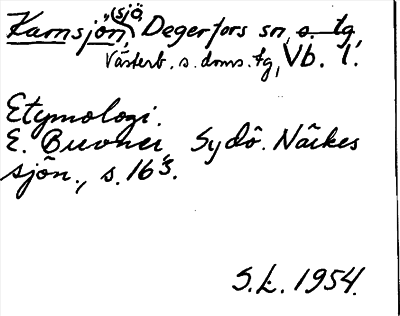 Kamsjön, (sjö Degerfors sn, s. tg,
Västerb. s. doms. tg, Vb. l.
Etymologi.
E. Brevner, Sydö. Närkes
sjön., s. 163.
S.L. 1954.